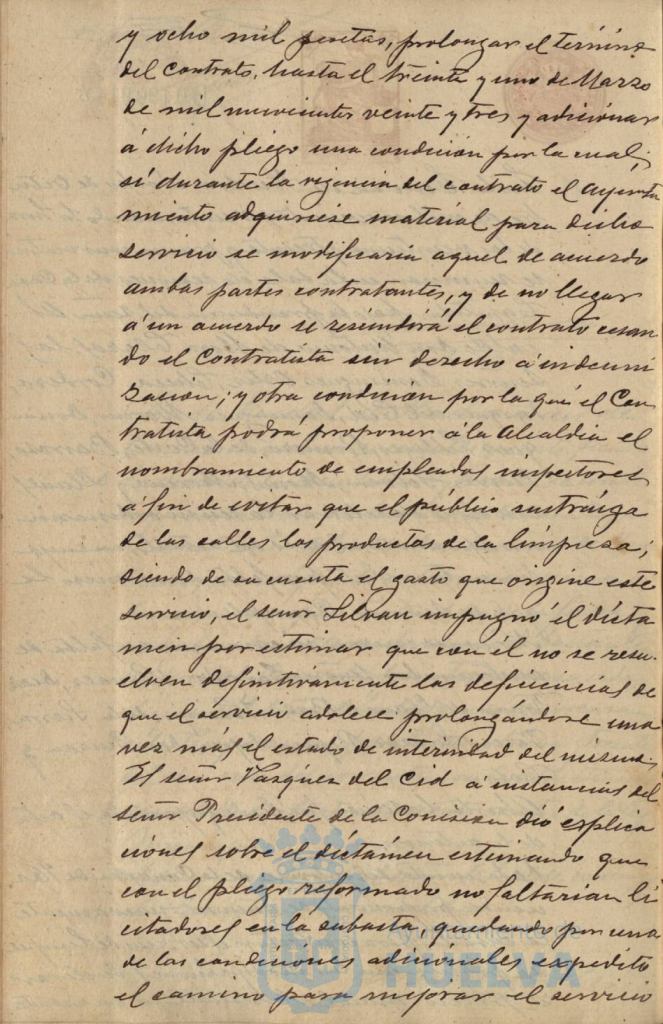 y ocho mil pesetas, prolongar el término
del contrato, hasta el treinta y uno de Marzo
de mil novecientos veinte y tres y adicionar
á dicho pliego una condición por la cual,
sí durante la vigencia del contrato el Ayunta
miento adquiriese material para dicho
servicio se modificaria aquel de acuerdo
ambas partes contratantes, y de no llegar
á un acuerdo se rescindirá el contrato cesan
do el Contratista sin derecho á indemni
zación; y otra condición por la que el Con
tratista podrá proponer á la Alcaldia el
nombramiento de empleados inspectores
á fin de evitar que el público sustráiga
de las calles los productos de la limpieza;
siendo de su cuenta el gasto que origine este
servicio, el señor Silvan impugnó el dícta
men por estimar que con él no se resu-
elven definitivamente las deficiencias de
que el servicio adolece prolongándose una
vez más el estado de interinidad del mismo.
El señor Vázquez del Cid á instancias del
señor Presidente de la Comision dió explica
ciones sobre el díctámen estimando que
con el pliego reformado no faltarian li
citadores en la subasta, quedando por una
de las condiciónes adiciónales expedito
el camino para mejorar el servicio
HUELVA